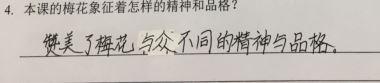 4. 本课的梅花象征着怎样的精神和品格?
赞美了梅花与众不同的精神与品格。